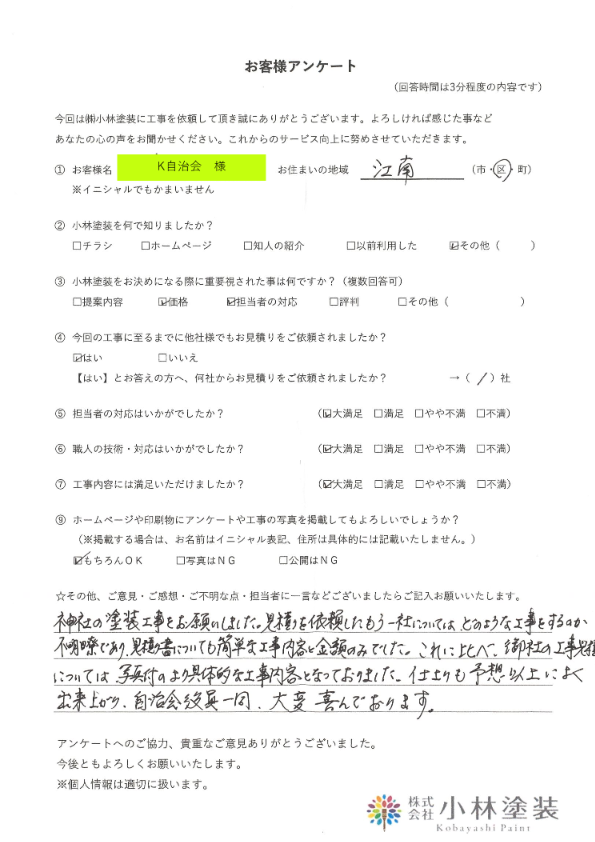 お客様アンケート
（回答時間は3分程度の内容です）
今回は㈱小林塗装に工事を依頼して頂き誠にありがとうございます。よろしければ感じた事など
あなたの心の声をお聞かせください。これからのサービス向上に努めさせていただきます。
① お客様名 K自治会 様 お住まいの地域 江南 （市・区・町）
※イニシャルでもかまいません
② 小林塗装を何で知りましたか？
□チラシ □ホームページ □知人の紹介 □以前利用した ☑その他（ ）
③ 小林塗装をお決めになる際に重要視された事は何ですか？（複数回答可）
□提案内容 ☑価格 ☑担当者の対応 □評判 □その他（ ）
④ 今回の工事に至るまでに他社様でもお見積りをご依頼されましたか？
☑はい □いいえ
【はい】とお答えの方へ、何社からお見積りをご依頼されましたか？ →（ / ）社
⑤ 担当者の対応はいかがでしたか？ （☑大満足 □満足 □やや不満 □不満）
⑥ 職人の技術・対応はいかがでしたか？ （☑大満足 □満足 □やや不満 □不満）
⑦ 工事内容には満足いただけましたか？ （☑大満足 □満足 □やや不満 □不満）
⑨ ホームページや印刷物にアンケートや工事の写真を掲載してもよろしいでしょうか？
（※掲載する場合は、お名前はイニシャル表記、住所は具体的には記載いたしません。）
☑もちろんＯＫ □写真はＮＧ □公開はＮＧ
☆その他、ご意見・ご感想・ご不明な点・担当者に一言などございましたらご記入お願いいたします。
神社の塗装工事をお願いしました。見積りを依頼したもう一社については、どのような工事をするのか
不明瞭であり、見積書についても簡単な工事内容と金額のみでした。これに比べ、御社の工事見積
については、写真付のより具体的な工事内容となっておりました。仕上りも予想以上によく
出来上がり、自治会役員一同、大変喜んでおります。
アンケートへのご協力、貴重なご意見ありがとうございました。
今後ともよろしくお願いいたします。
※個人情報は適切に扱います。
株式会社 小林塗装
Kobayashi Paint